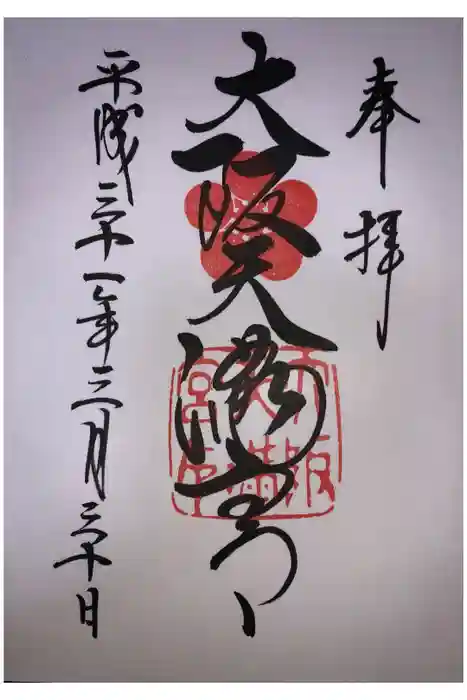 奉拝
大阪天満宮
平成三十一年三月三十日
大阪
天満
宮印